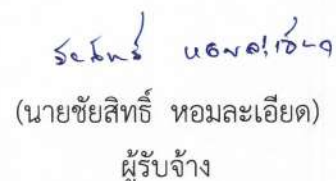 ชัยสิทธิ์ หอมละเอียด
(นายชัยสิทธิ์ หอมละเอียด)
ผู้รับจ้าง